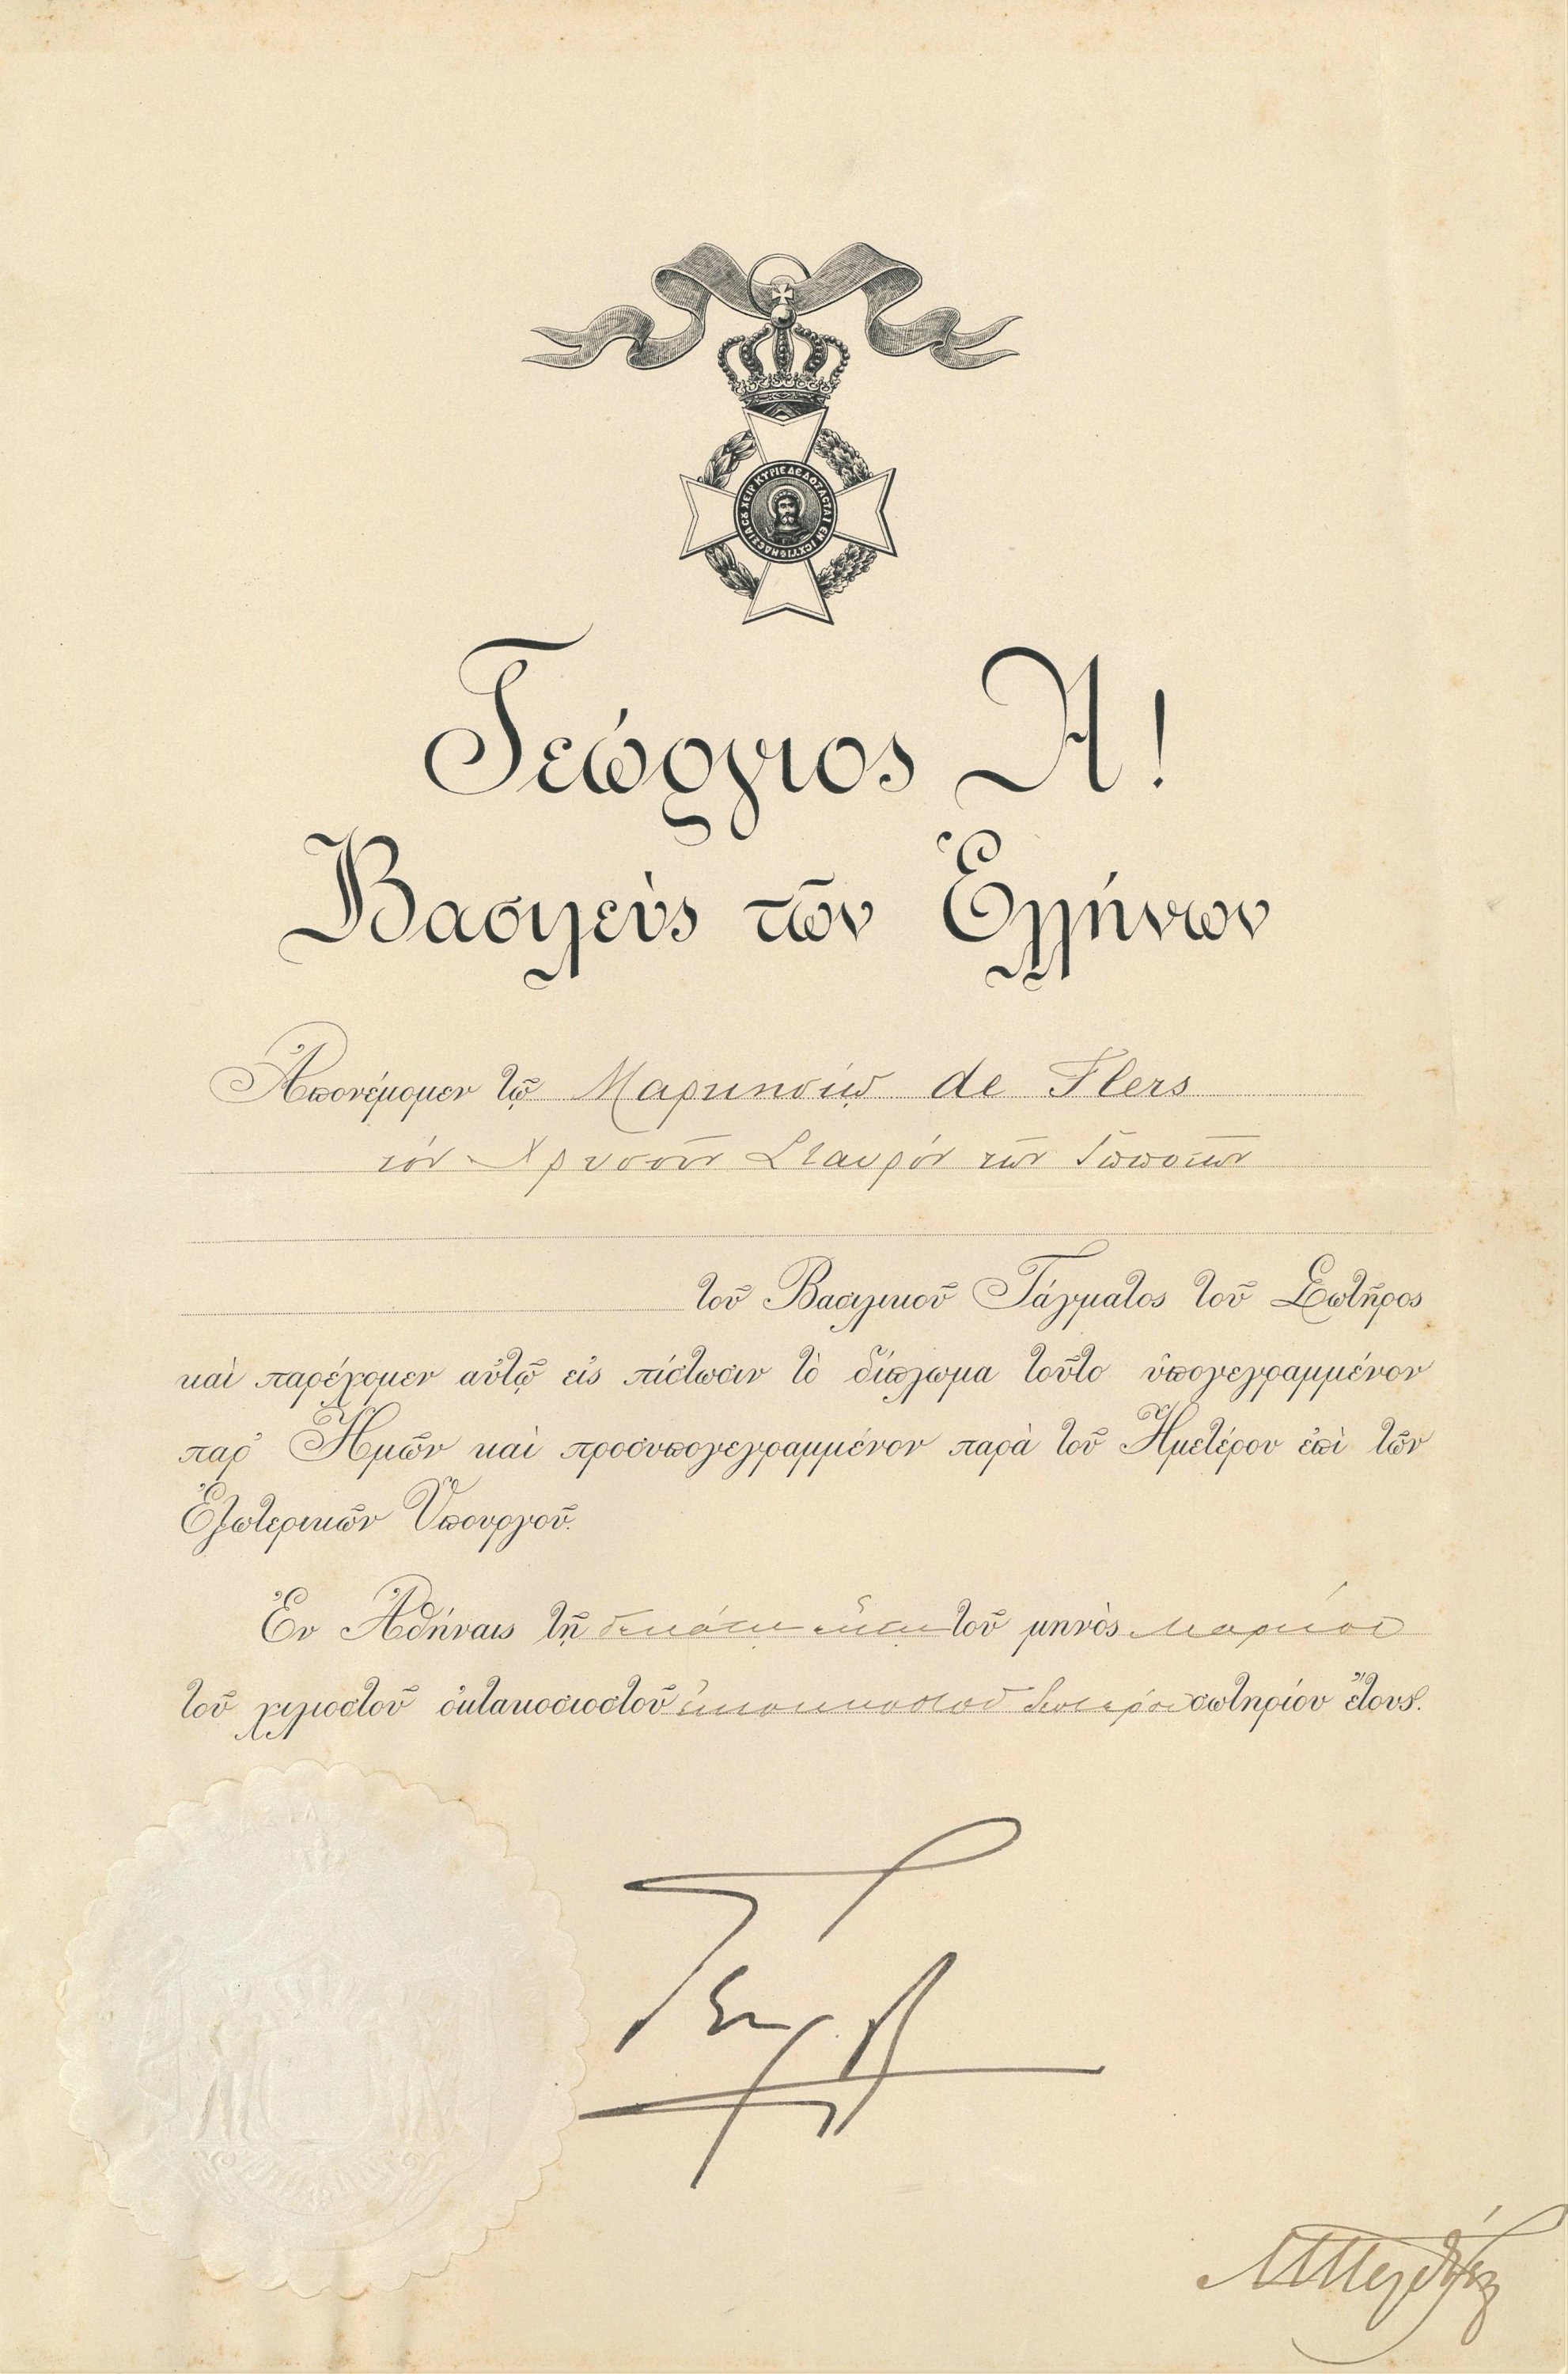 Η ΔΕΞΙΑ ΣΟΥ ΧΕΙΡ ΚΥΡΙΕ ΔΕΔΟΞΑΣΤΑΙ ΕΝ ΙΣΧΥΙ
Γεώργιος Α!
Βασιλεὺς τῶν Ἑλλήνων
Ἀπονέμομεν τῷ Μαρκησίῳ de Flers
τόν Χρυσοῦν Σταυρόν τῶν Ἱπποτῶν
τοῦ Βασιλικοῦ Τάγματος τοῦ Σωτῆρος
καὶ παρέχομεν αὐτῷ εἰς πίστωσιν τὸ δίπλωμα τοῦτο ὑπογεγραμμένον
παρ' Ἡμῶν καὶ προσυπογεγραμμένον παρὰ τοῦ Ἡμετέρου ἐπὶ τῶν
Ἐξωτερικῶν Ὑπουργοῦ.
Ἐν Ἀθήναις τῇ δεκάτῃ ἕκτῃ τοῦ μηνὸς Μαρτίου
τοῦ χιλιοστοῦ ὀκτακοσιοστοῦ δευτέρου σωτηρίου ἔτους.